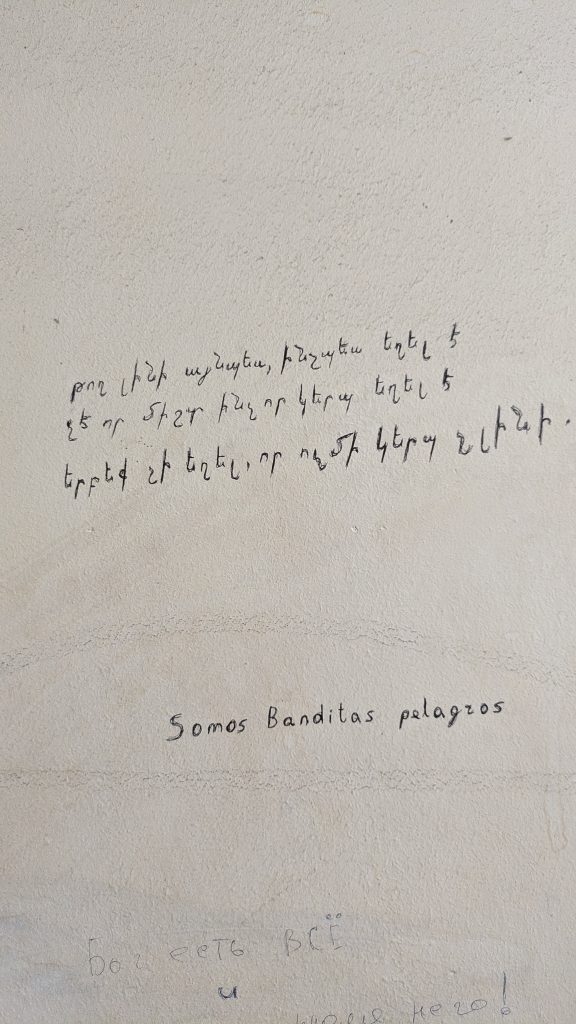 թող լինի այնպես, ինչպես եղել է
չէ որ միշտ ինչ որ կերպ եղել է
երբեք չի եղել, որ ոչ մի կերպ չլինի.
Somos Banditas pelagros
Бог есть ВСЁ
и
него!